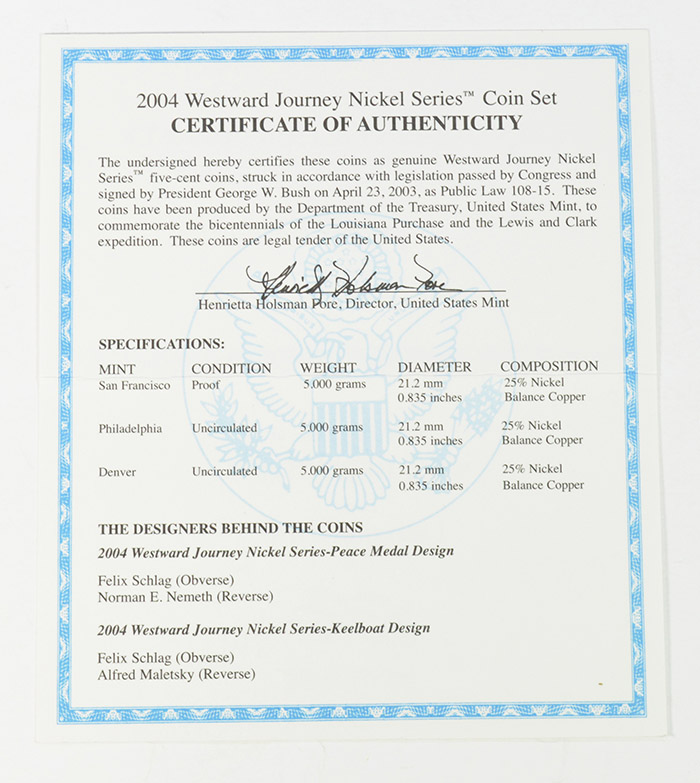 2004 Westward Journey Nickel Series™ Coin Set
CERTIFICATE OF AUTHENTICITY
The undersigned hereby certifies these coins as genuine Westward Journey Nickel
Series™ five-cent coins, struck in accordance with legislation passed by Congress and
signed by President George W. Bush on April 23, 2003, as Public Law 108-15. These
coins have been produced by the Department of the Treasury, United States Mint, to
commemorate the bicentennials of the Louisiana Purchase and the Lewis and Clark
expedition. These coins are legal tender of the United States.
Henrietta Holsman Fore
Henrietta Holsman Fore, Director, United States Mint
SPECIFICATIONS:
MINT CONDITION WEIGHT DIAMETER COMPOSITION
San Francisco Proof 5.000 grams 21.2 mm 25% Nickel
0.835 inches Balance Copper
Philadelphia Uncirculated 5.000 grams 21.2 mm 25% Nickel
0.835 inches Balance Copper
Denver Uncirculated 5.000 grams 21.2 mm 25% Nickel
0.835 inches Balance Copper
THE DESIGNERS BEHIND THE COINS
2004 Westward Journey Nickel Series-Peace Medal Design
Felix Schlag (Obverse)
Norman E. Nemeth (Reverse)
2004 Westward Journey Nickel Series-Keelboat Design
Felix Schlag (Obverse)
Alfred Maletsky (Reverse)